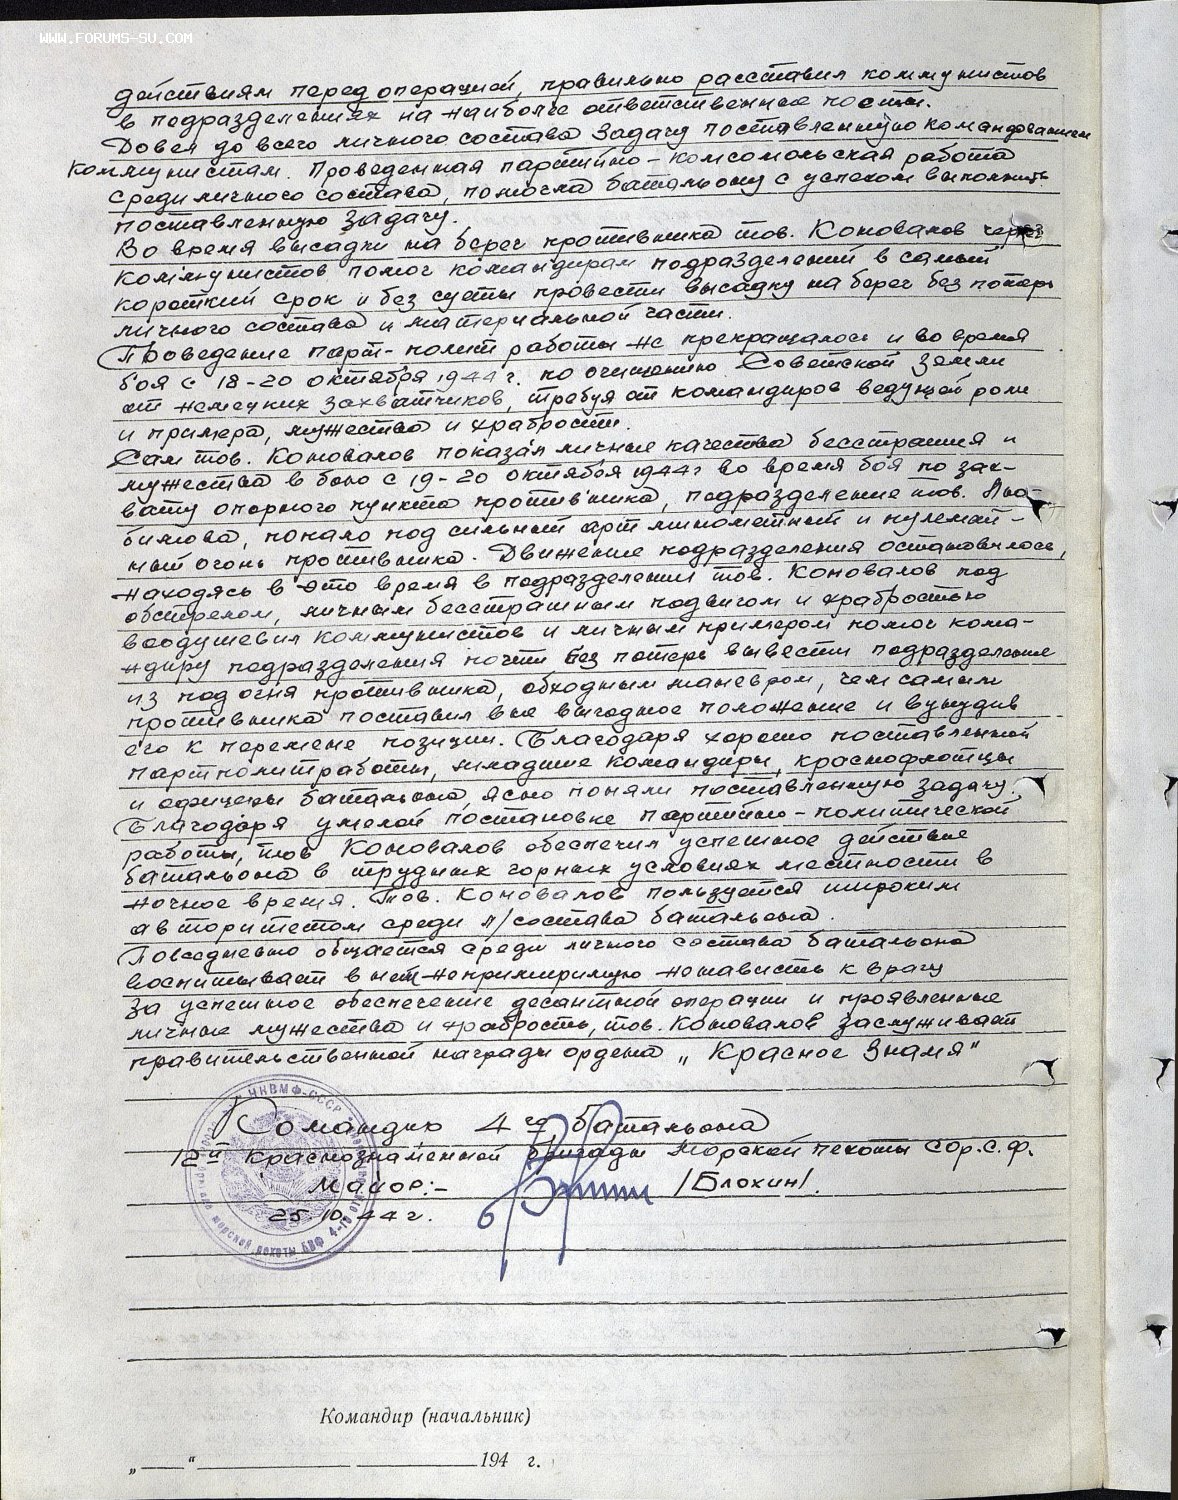 WWW.FORUMS-SU.COM
действиям перед операцией, правильно расставил коммунистов
в подразделениях на наиболее ответственные посты.
Довел до всего личного состава задачу поставленную командованием
коммунистам. Проведенная партийно-комсомольская работа
среди личного состава, помогла батальону с успехом выполнить
поставленную задачу.
Во время высадки на берег противника тов. Коновалов через
коммунистов помог командирам подразделений в самый
короткий срок и без суеты провести высадку на берег без потерь
личного состава и материальной части.
Проведение парт-полит работы не прекращалось и во время
боя с 18-20 октября 1944 г. по очищению Советской земли
от немецких захватчиков, требуя от командиров ведущей роли
и примера, мужества и храбрости.
Сам тов. Коновалов показал личные качества бесстрашия и
мужества в бою с 19-20 октября 1944 г во время боя по зах-
вату опорного пункта противника, подразделение тов. Лю-
бимова, попало под сильный артминометный и пулемет-
ный огонь противника. Движение подразделения остановилось,
находясь в это время в подразделении тов. Коновалов под
обстрелом, личным бесстрашным подвигом и храбростью
воодушевил коммунистов и личным примером помог кома-
ндиру подразделения почти без потерь вывести подразделение
из под огня противника, обходным маневром, чем самым
противника поставил в не выгодное положение и вынудив
его к перемене позиции. Благодаря хорошо поставленной
партполитработы, младшие командиры, краснофлотцы
и офицеры батальона, ясно поняли поставленную задачу.
Благодаря умелой постановке партийно-политической
работы, тов Коновалов обеспечил успешное действие
батальона в трудных горных условиях местности в
ночное время. Тов. Коновалов пользуется широким
авторитетом среди л/состава батальона.
Повседневно общается среди личного состава батальона
воспитывает в нем непримиримую ненависть к врагу
За успешное обеспечение десантной операции и проявленные
личные мужества и храбрость, тов. Коновалов заслуживает
правительственной награды ордена „Красное Знамя"
Командир 4го батальона
12й Краснознаменной бригады Морской пехоты СОР.С.Ф.
Майор:- /Блохин/.
25.10.44 г.
НКВМФ-СССР
морской пехоты
Командир (начальник)
„ “ 194 г.